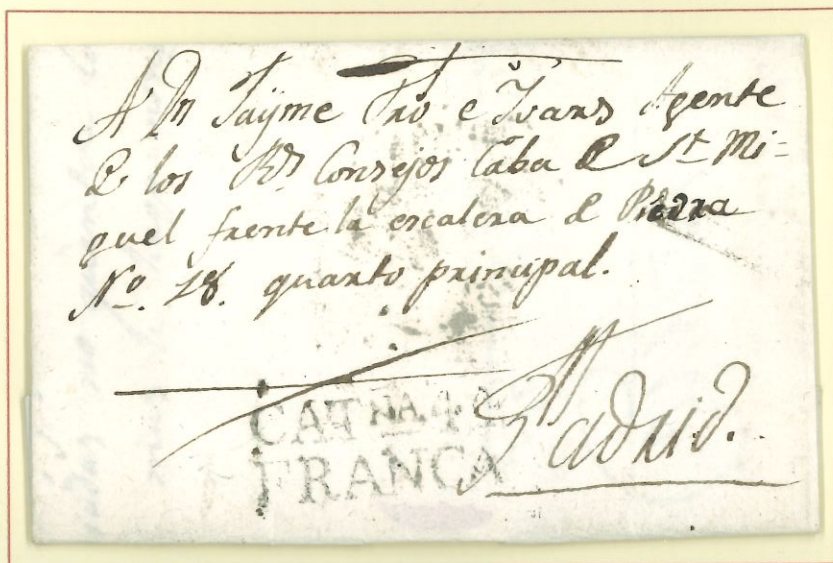 A Dn Jayme Fró e Ivars Agente
de los Rs Consejos Caba de St Mi=
quel frente la escalera de Piedra
No. 18. quarto principal.
CATNA
FRANCA
Madrid.